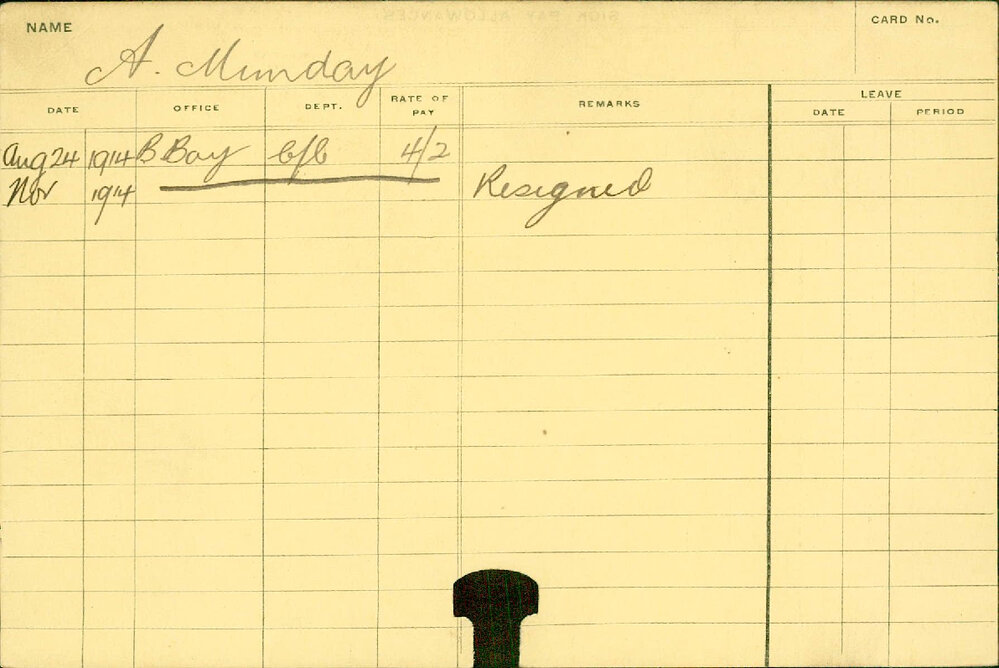 NAME
CARD No.
A. Munday
DATE OFFICE DEPT. RATE OF PAY REMARKS LEAVE
DATE PERIOD
Aug 24 1914 B Bay 4/2
Nov 1914 Resigned